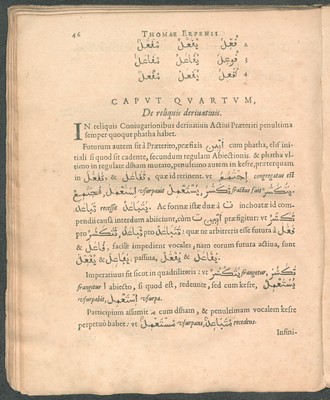 46 THOMAE ERPENII
فُعِّلَ يُفَعَّلُ مُفَعَّلٌ 2
فُوعِلَ يُفَاعَلُ مُفَاعَلٌ 3
أُفْعِلَ يُفْعَلُ مُفْعَلٌ 4
CAPVT QVARTVM,
De reliquis derivativis.
IN reliquis Coniugationibus derivativis Activi Præteriti penultima
semper quoque phatha habet.
Futurum autem fit à Præterito, præfixis أتين cum phatha, elisi ini-
tiali si quod sit cadente, secundum regulam Abiectionis. & phatha vl-
timo in regulare dsham mutato, penultimo autem in kesre, præterquam
in تَفَعَّلَ, & تَفَاعَلَ, quæ id retinent. vt اِجْتَمَعَ congregatus est
يَجْتَمِعُ, اِسْتَعْمَلَ vsurpavit يَسْتَعْمِلُ, تَكَسَّرَ fractus fuit
يَتَكَسَّرُ, تَبَاعَدَ recessit يَتَبَاعَدُ. Ac formæ istæ duæ à ت inchoatæ id com-
pendii causâ interdum abiiciunt, cùm أتين præfigitur: vt تَكَسَّرُ
pro تَتَكَسَّرُ, تَبَاعَدُ pro تَتَبَاعَدُ: quæ ne arbitreris esse futura à فَعَّلَ
& فَاعَلَ, facilè impedient vocales, nam eorum futura activa, sunt
يُفَعِّلُ & يُفَاعِلُ, passiva, يُفَعَّلُ & يُفَاعَلُ.
Imperativus fit sicut in quadriliteris: vt يَتَكَسَّرُ frangetur, تَكَسَّرْ
frangetor ا abiecto, si quod est, redeunte, sed cum kesre, يَسْتَعْمِلُ
vsurpabit, اِسْتَعْمِلْ vsurpa.
Participium assumit مـ cum dsham, & penultimam vocalem kesre
perpetuò habet: vt مُسْتَعْمِلٌ vsurpans, مُتَبَاعِدٌ recedens.
Infini-